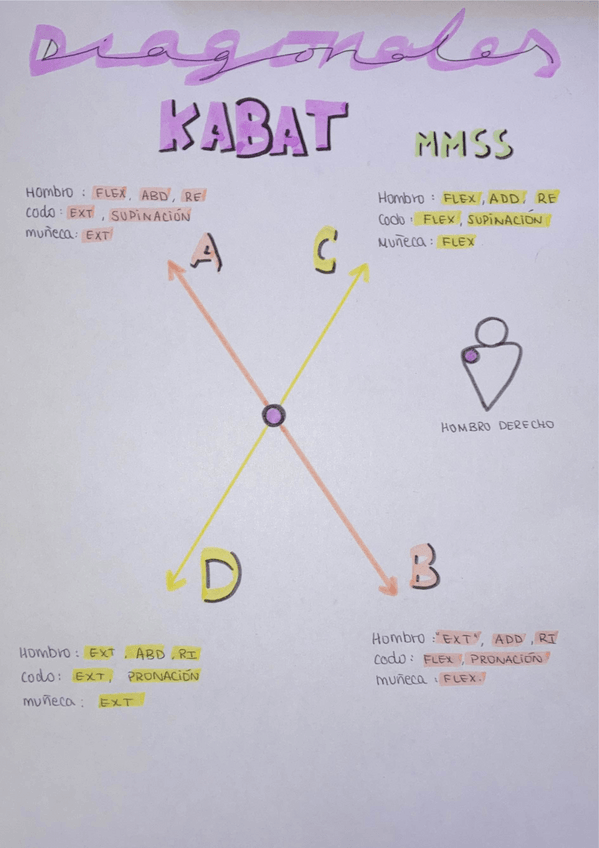 Diagonales
KABAT
MMSS
Hombro : FLEX, ABD, RE
codo: EXT, SUPINACIÓN
muñeca: EXT
Hombro : FLEX, ADD, RE
codo: FLEX, SUPINACIÓN
muñeca: FLEX
A
C
HOMBRO DERECHO
D
B
Hombro : EXT, ABD, RI
codo: EXT, PRONACIÓN
muñeca: EXT
Hombro :"EXT", ADD, RI
codo: FLEX, PRONACIÓN
muñeca: FLEX.